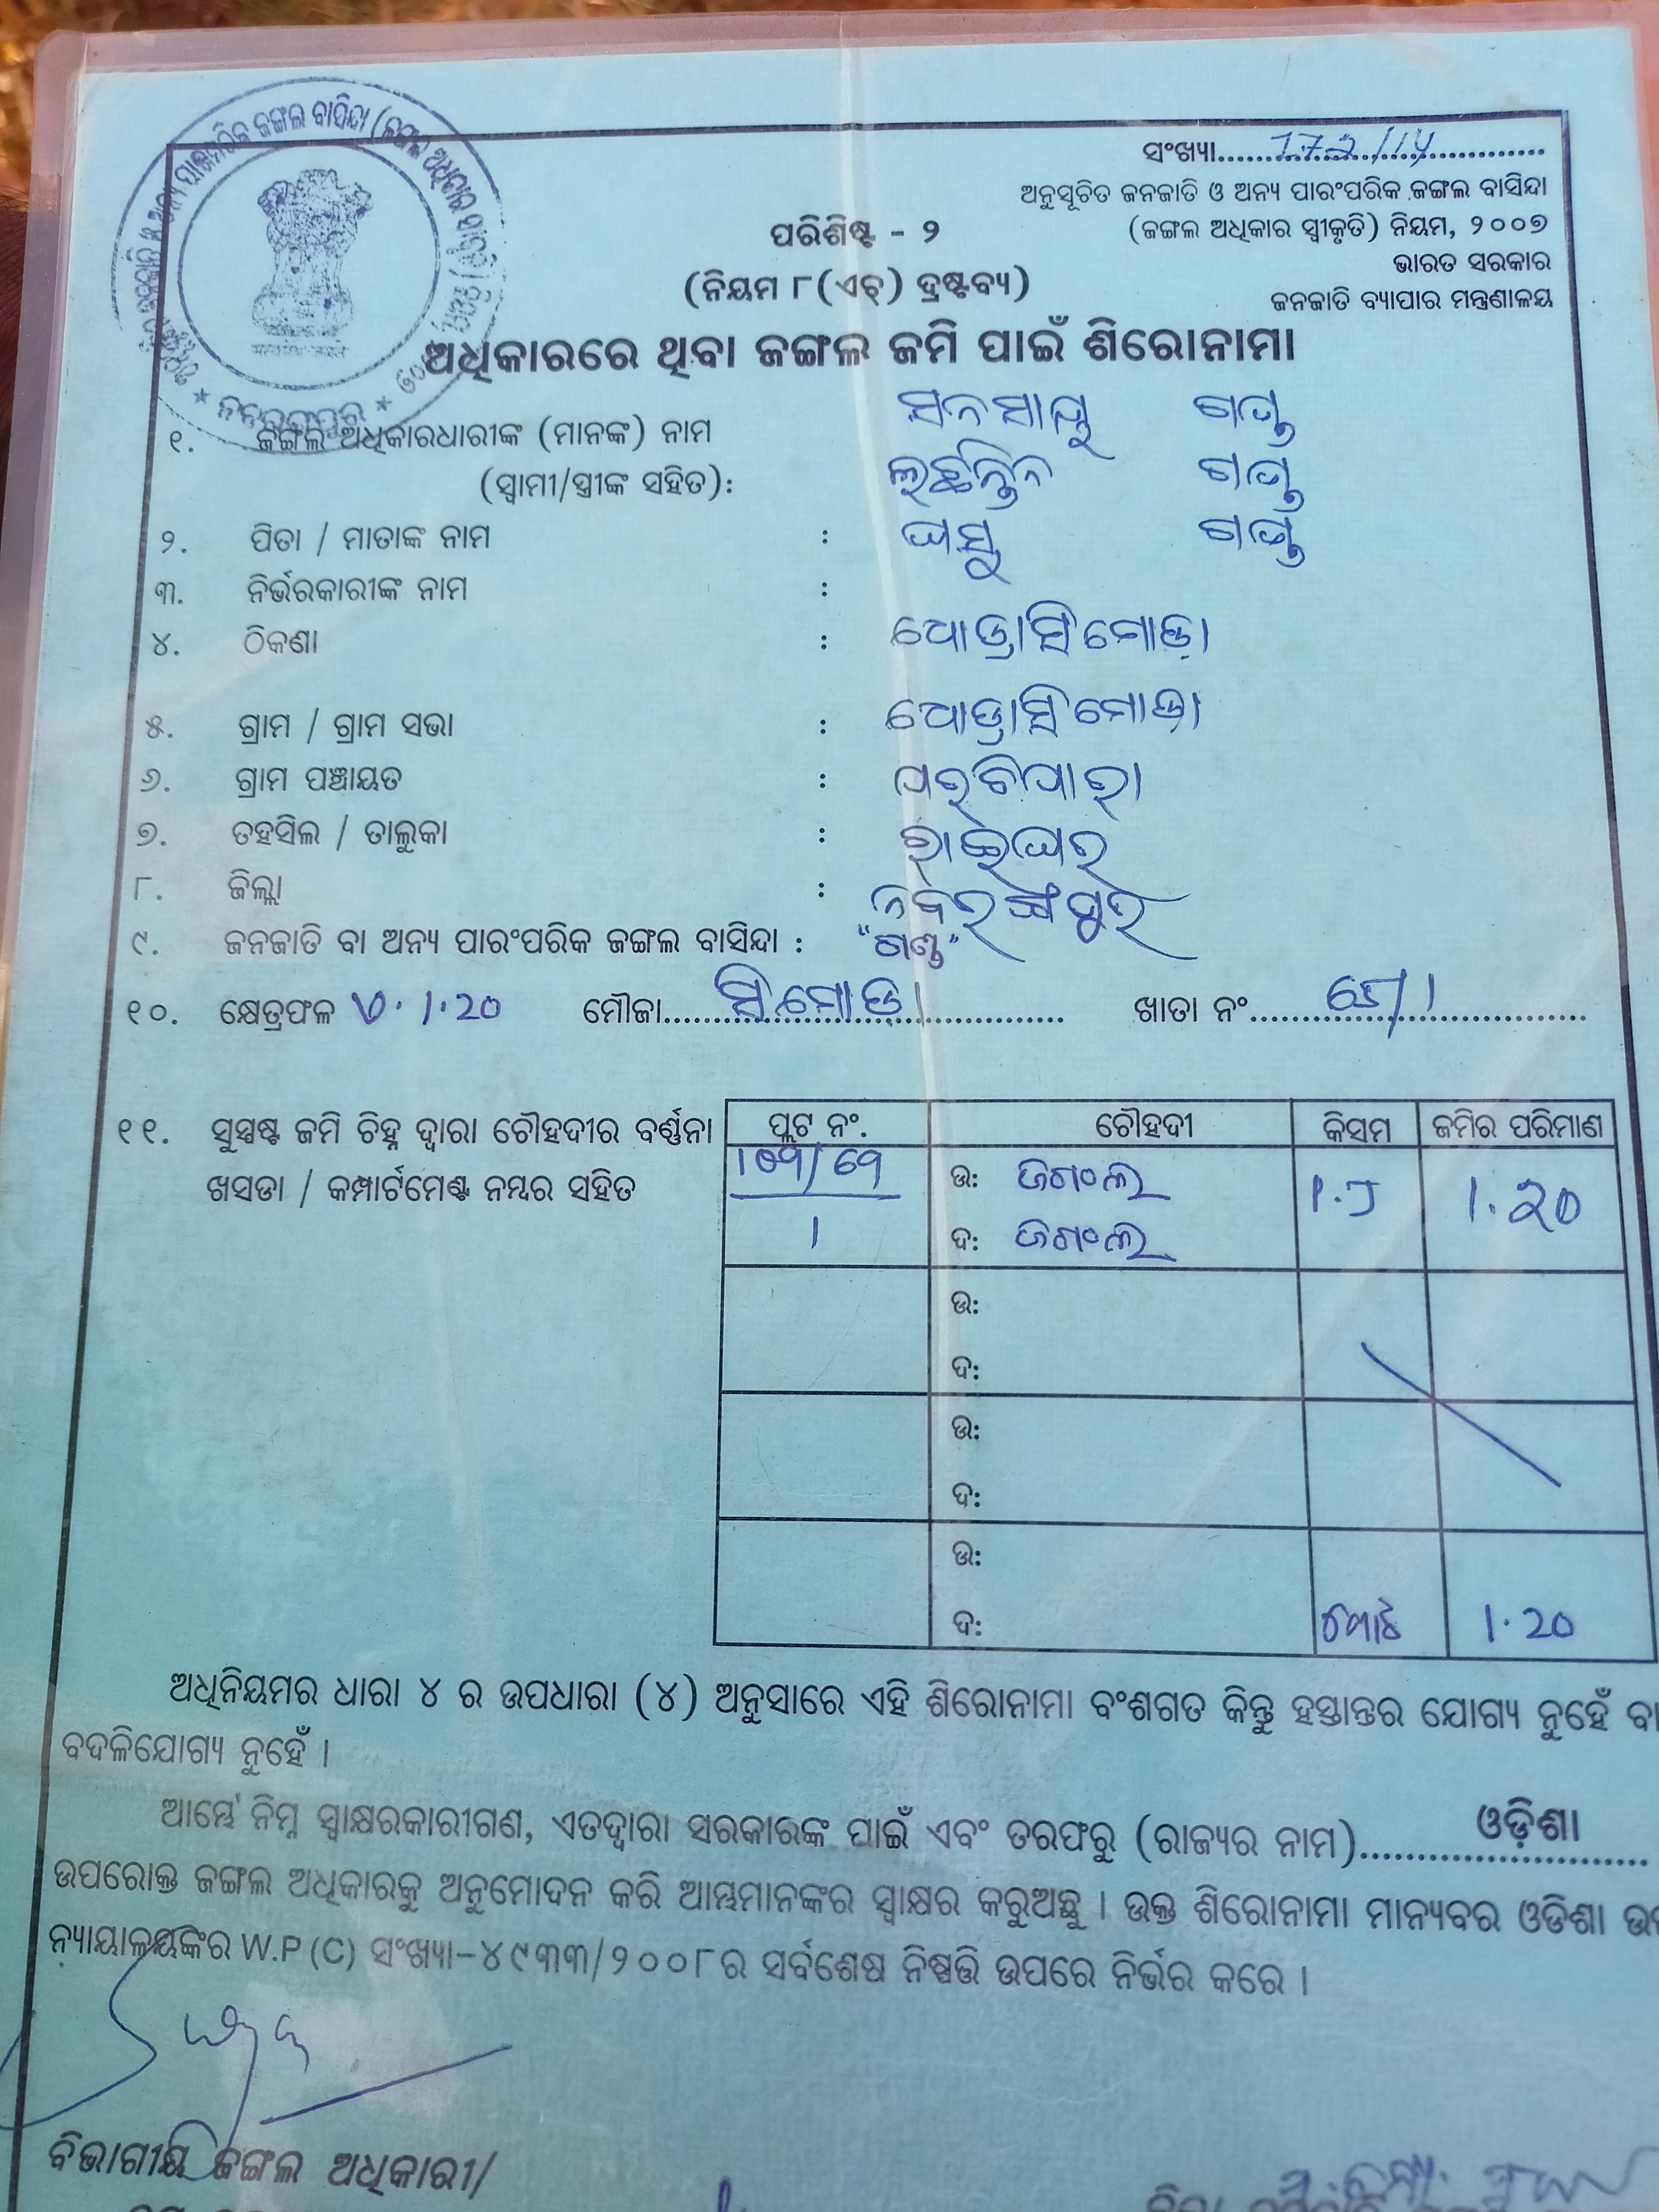 ସଂଖ୍ୟା.......172/14.......
ଅନୁସୂଚିତ ଜନଜାତି ଓ ଅନ୍ୟ ପାରଂପରିକ ଜଙ୍ଗଲ ବାସିନ୍ଦା
(ଜଙ୍ଗଲ ଅଧିକାର ସ୍ୱୀକୃତି) ନିୟମ, ୨୦୦୭
ଭାରତ ସରକାର
ଜନଜାତି ବ୍ୟାପାର ମନ୍ତ୍ରଣାଳୟ
ପରିଶିଷ୍ଟ - ୨
(ନିୟମ ୮(ଏଚ୍) ଦ୍ରଷ୍ଟବ୍ୟ)
ଅଧିକାରରେ ଥିବା ଜଙ୍ଗଲ ଜମି ପାଇଁ ଶିରୋନାମା
୧. ଜଙ୍ଗଲ ଅଧିକାରଧାରୀଙ୍କ (ମାନଙ୍କ) ନାମ
(ସ୍ୱାମୀ/ସ୍ତ୍ରୀଙ୍କ ସହିତ):
୨. ପିତା / ମାତାଙ୍କ ନାମ : ଘାସୁ
୩. ନିର୍ଭରକାରୀଙ୍କ ନାମ :
୪. ଠିକଣା :
୫. ଗ୍ରାମ / ଗ୍ରାମ ସଭା :
୬. ଗ୍ରାମ ପଞ୍ଚାୟତ :
୭. ତହସିଲ / ତାଲୁକା : ରାଇଘର
୮. ଜିଲ୍ଲା : ନବରଙ୍ଗପୁର
୯. ଜନଜାତି ବା ଅନ୍ୟ ପାରଂପରିକ ଜଙ୍ଗଲ ବାସିନ୍ଦା : "ଗଣ୍ଡ"
୧୦. କ୍ଷେତ୍ରଫଳ 1.20 ମୌଜା....ସିମୋଡ଼ା.... ଖାତା ନଂ........
୧୧. ସୁସ୍ପଷ୍ଟ ଜମି ଚିହ୍ନ ଦ୍ୱାରା ଚୌହଦୀର ବର୍ଣ୍ଣନା ପ୍ଲଟ ନଂ. ଚୌହଦୀ କିସମ ଜମିର ପରିମାଣ
ଖସଡା / କମ୍ପାର୍ଟମେଣ୍ଟ ନମ୍ବର ସହିତ ଉ: ଜଗଂଲ 1.20
1 ଦ: ଜଗଂଲ
ଉ:
ଦ:
ଉ:
ଦ:
ଉ:
ଦ: ମୋଟ 1.20
ଅଧିନିୟମର ଧାରା ୪ ର ଉପଧାରା (୪) ଅନୁସାରେ ଏହି ଶିରୋନାମା ବଂଶଗତ କିନ୍ତୁ ହସ୍ତାନ୍ତର ଯୋଗ୍ୟ ନୁହେଁ ବା
ବଦଳିଯୋଗ୍ୟ ନୁହେଁ ।
ଆମ୍ଭେ ନିମ୍ନ ସ୍ୱାକ୍ଷରକାରୀଗଣ, ଏତଦ୍ୱାରା ସରକାରଙ୍କ ପାଇଁ ଏବଂ ତରଫରୁ (ରାଜ୍ୟର ନାମ)....ଓଡ଼ିଶା....
ଉପରୋକ୍ତ ଜଙ୍ଗଲ ଅଧିକାରକୁ ଅନୁମୋଦନ କରି ଆମ୍ଭମାନଙ୍କର ସ୍ୱାକ୍ଷର କରୁଅଛୁ । ଉକ୍ତ ଶିରୋନାମା ମାନ୍ୟବର ଓଡିଶା
ନ୍ୟାୟାଳୟଙ୍କର W.P(C) ସଂଖ୍ୟା-୪୯୩୩/୨୦୦୮ର ସର୍ବଶେଷ ନିଷ୍ପତ୍ତି ଉପରେ ନିର୍ଭର କରେ ।
ବିଭାଗୀୟ ଜଙ୍ଗଲ ଅଧିକାରୀ/